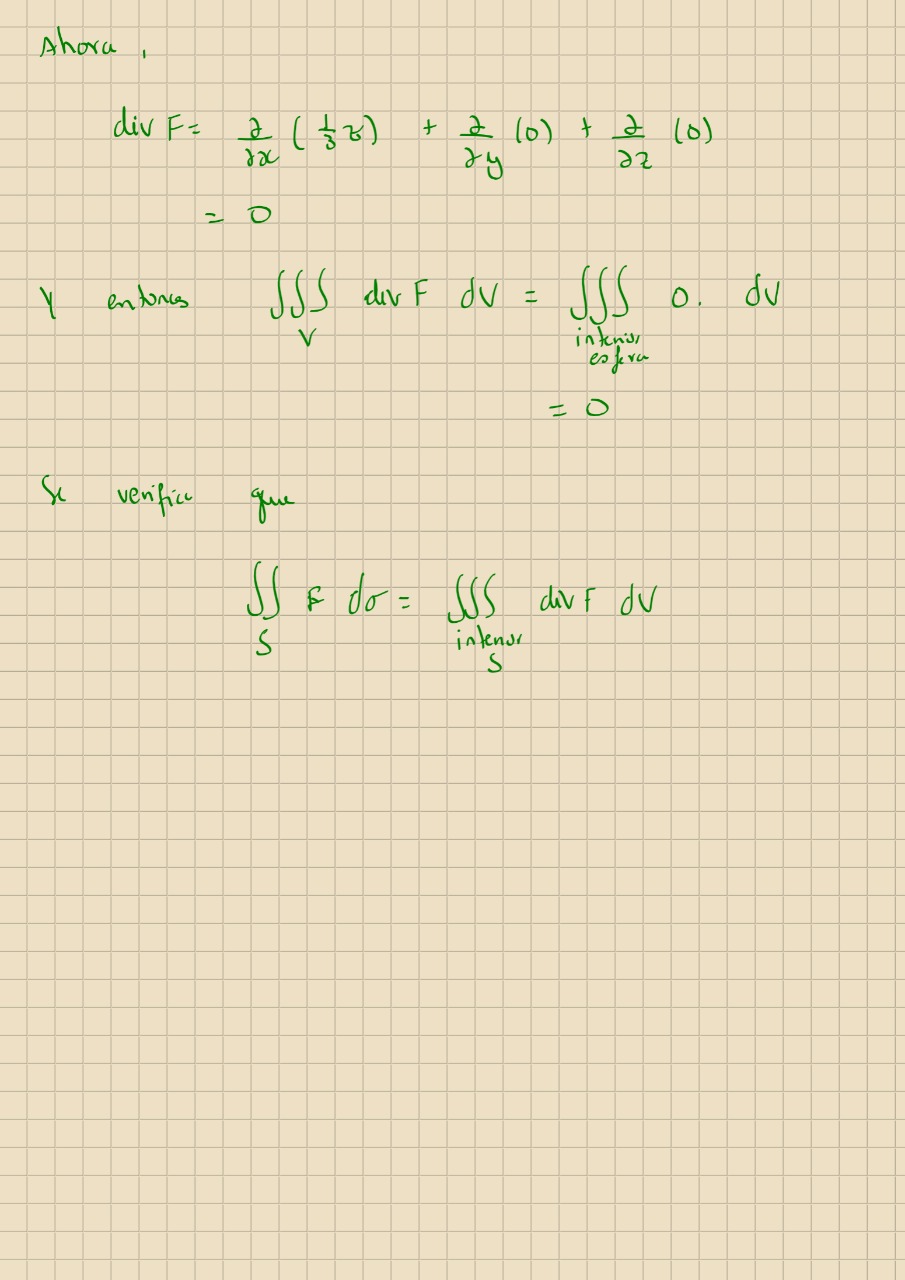 Ahora,
div F = ∂/∂x (1/3 z) + ∂/∂y (0) + ∂/∂z (0)
= 0
Y entonces ∭_V div F dV = ∭_{interior esfera} 0. dV
= 0
Se verifica que
∬_S F dσ = ∭_{interior S} div F dV